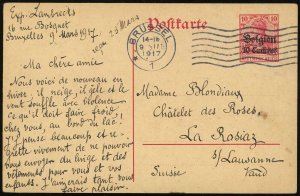 Exp. Lambrechts
16 rue Bosquet
Bruxelles 9 Mars 1917
reçu 23 Mars
Postkarte
BRÜSSEL
1917
1
10
10
Belgien
10 Centimes
Ma chère amie
Nous voici de nouveau en
hiver: il neige, il gèle et le
vent souffle avec violence.
ce qu'il doit faire froid
chez vous, au bord du lac!!
J'y pense beaucoup et re-
grette vivement de ne pouvoir
vous envoyer du linge et des
vêtements pour vous et vos
enfants. J'aimerais tant vous
faire plaisir
Madame Blondiaux
Châtelet des Roses
La Rosiaz
s/Lausanne
Suisse
Vaud